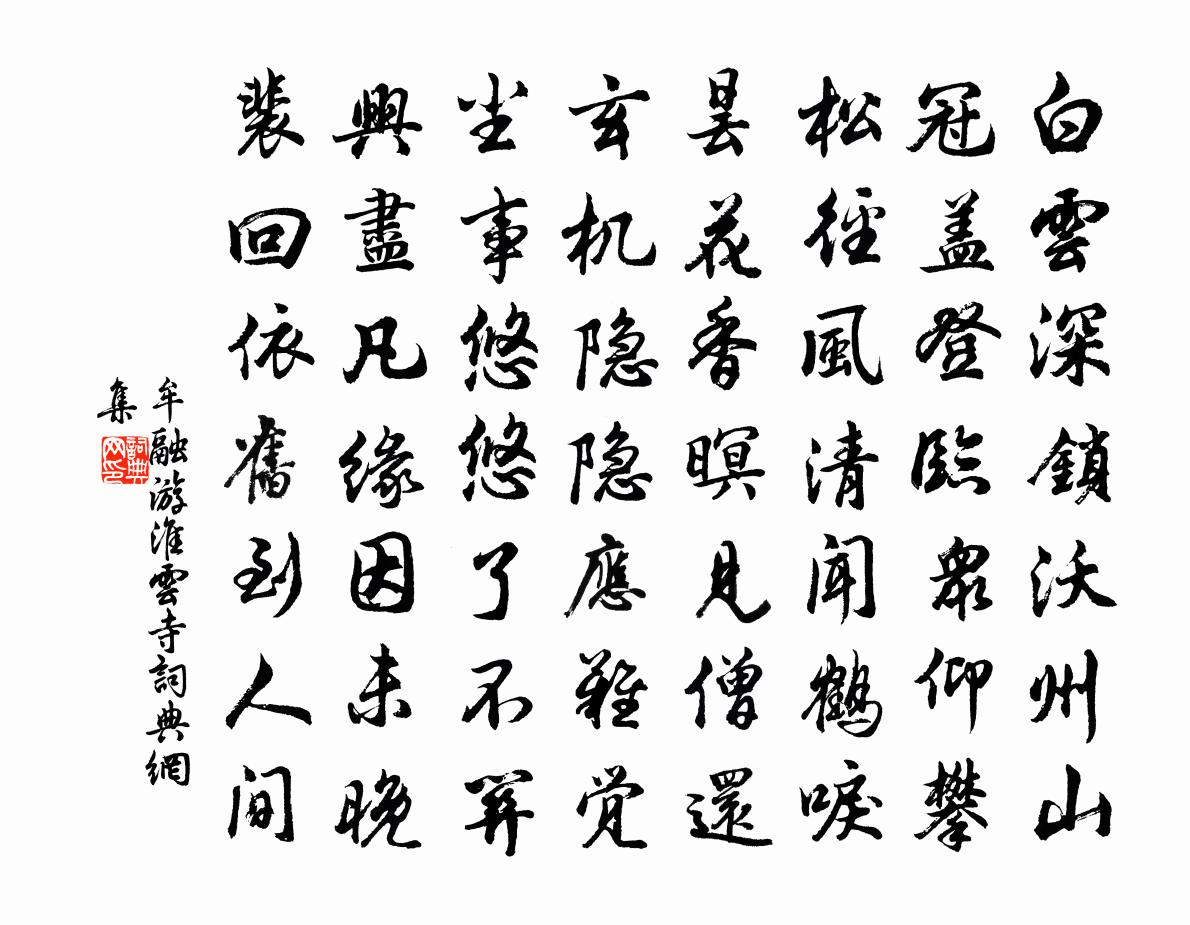 白雲深鎖沃州山
冠盖登臨眾仰攀
松徑風清聞鶴唳
曇花香暝見僧還
玄机隐隐應難觉
尘事悠悠了不關
興盡凡緣因未晚
裴回依舊到人間
牟融游淮雲寺詞典網
集
詞典
网印